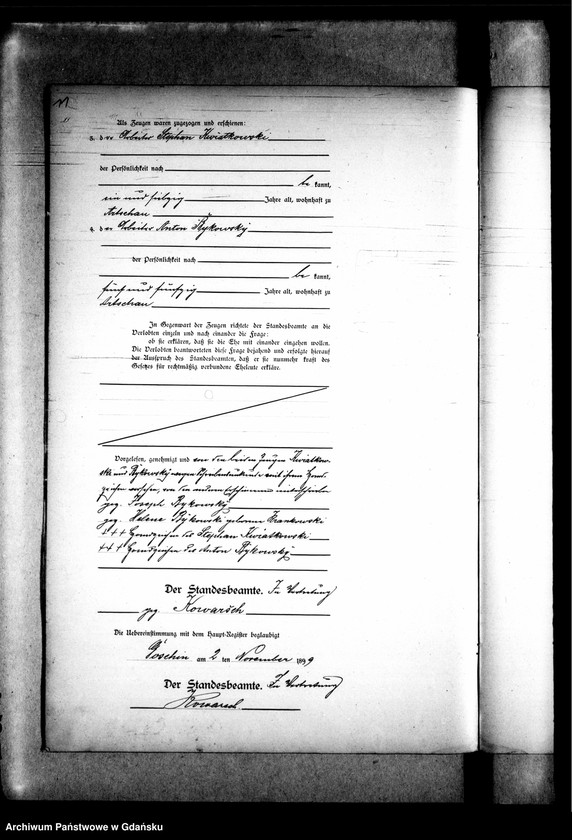 11
Als Zeugen waren zugezogen und erschienen:
3. der Arbeiter Stephan Kwiatkowski
der Persönlichkeit nach
be kannt,
ein und siebzig Jahre alt, wohnhaft zu
Artschau
4. der Arbeiter Anton Bykowsky
der Persönlichkeit nach
be kannt,
fünf und fünfzig Jahre alt, wohnhaft zu
Artschau
In Gegenwart der Zeugen richtete der Standesbeamte an die
Verlobten einzeln und nach einander die Frage:
ob sie erklären, daß sie die Ehe mit einander eingehen wollen.
Die Verlobten beantworteten diese Frage bejahend und erfolgte hierauf
der Ausspruch des Standesbeamten, daß er sie nunmehr kraft des
Gesetzes für rechtmäßig verbundene Eheleute erkläre.
Vorgelesen, genehmigt und von den beiden Zeugen Kwiatkow-
ski und Bykowsky wegen Schreibensunkunde mit ihrem Hand-
zeichen versehen, von den anderen Erschienenen unterschrieben
gez. Joseph Bykowsky
gez. Helene Bykowski geborene Frankowski
+++ Handzeichen des Stephan Kwiatkowski
+++ Handzeichen des Anton Bykowsky
Der Standesbeamte. In Vertretung
gez. Kowarsch
Die Uebereinstimmung mit dem Haupt-Register beglaubigt
Goschin am 2 ten November 1899
Der Standesbeamte. In Vertretung
Kowarsch
Archiwum Państwowe w Gdańsku